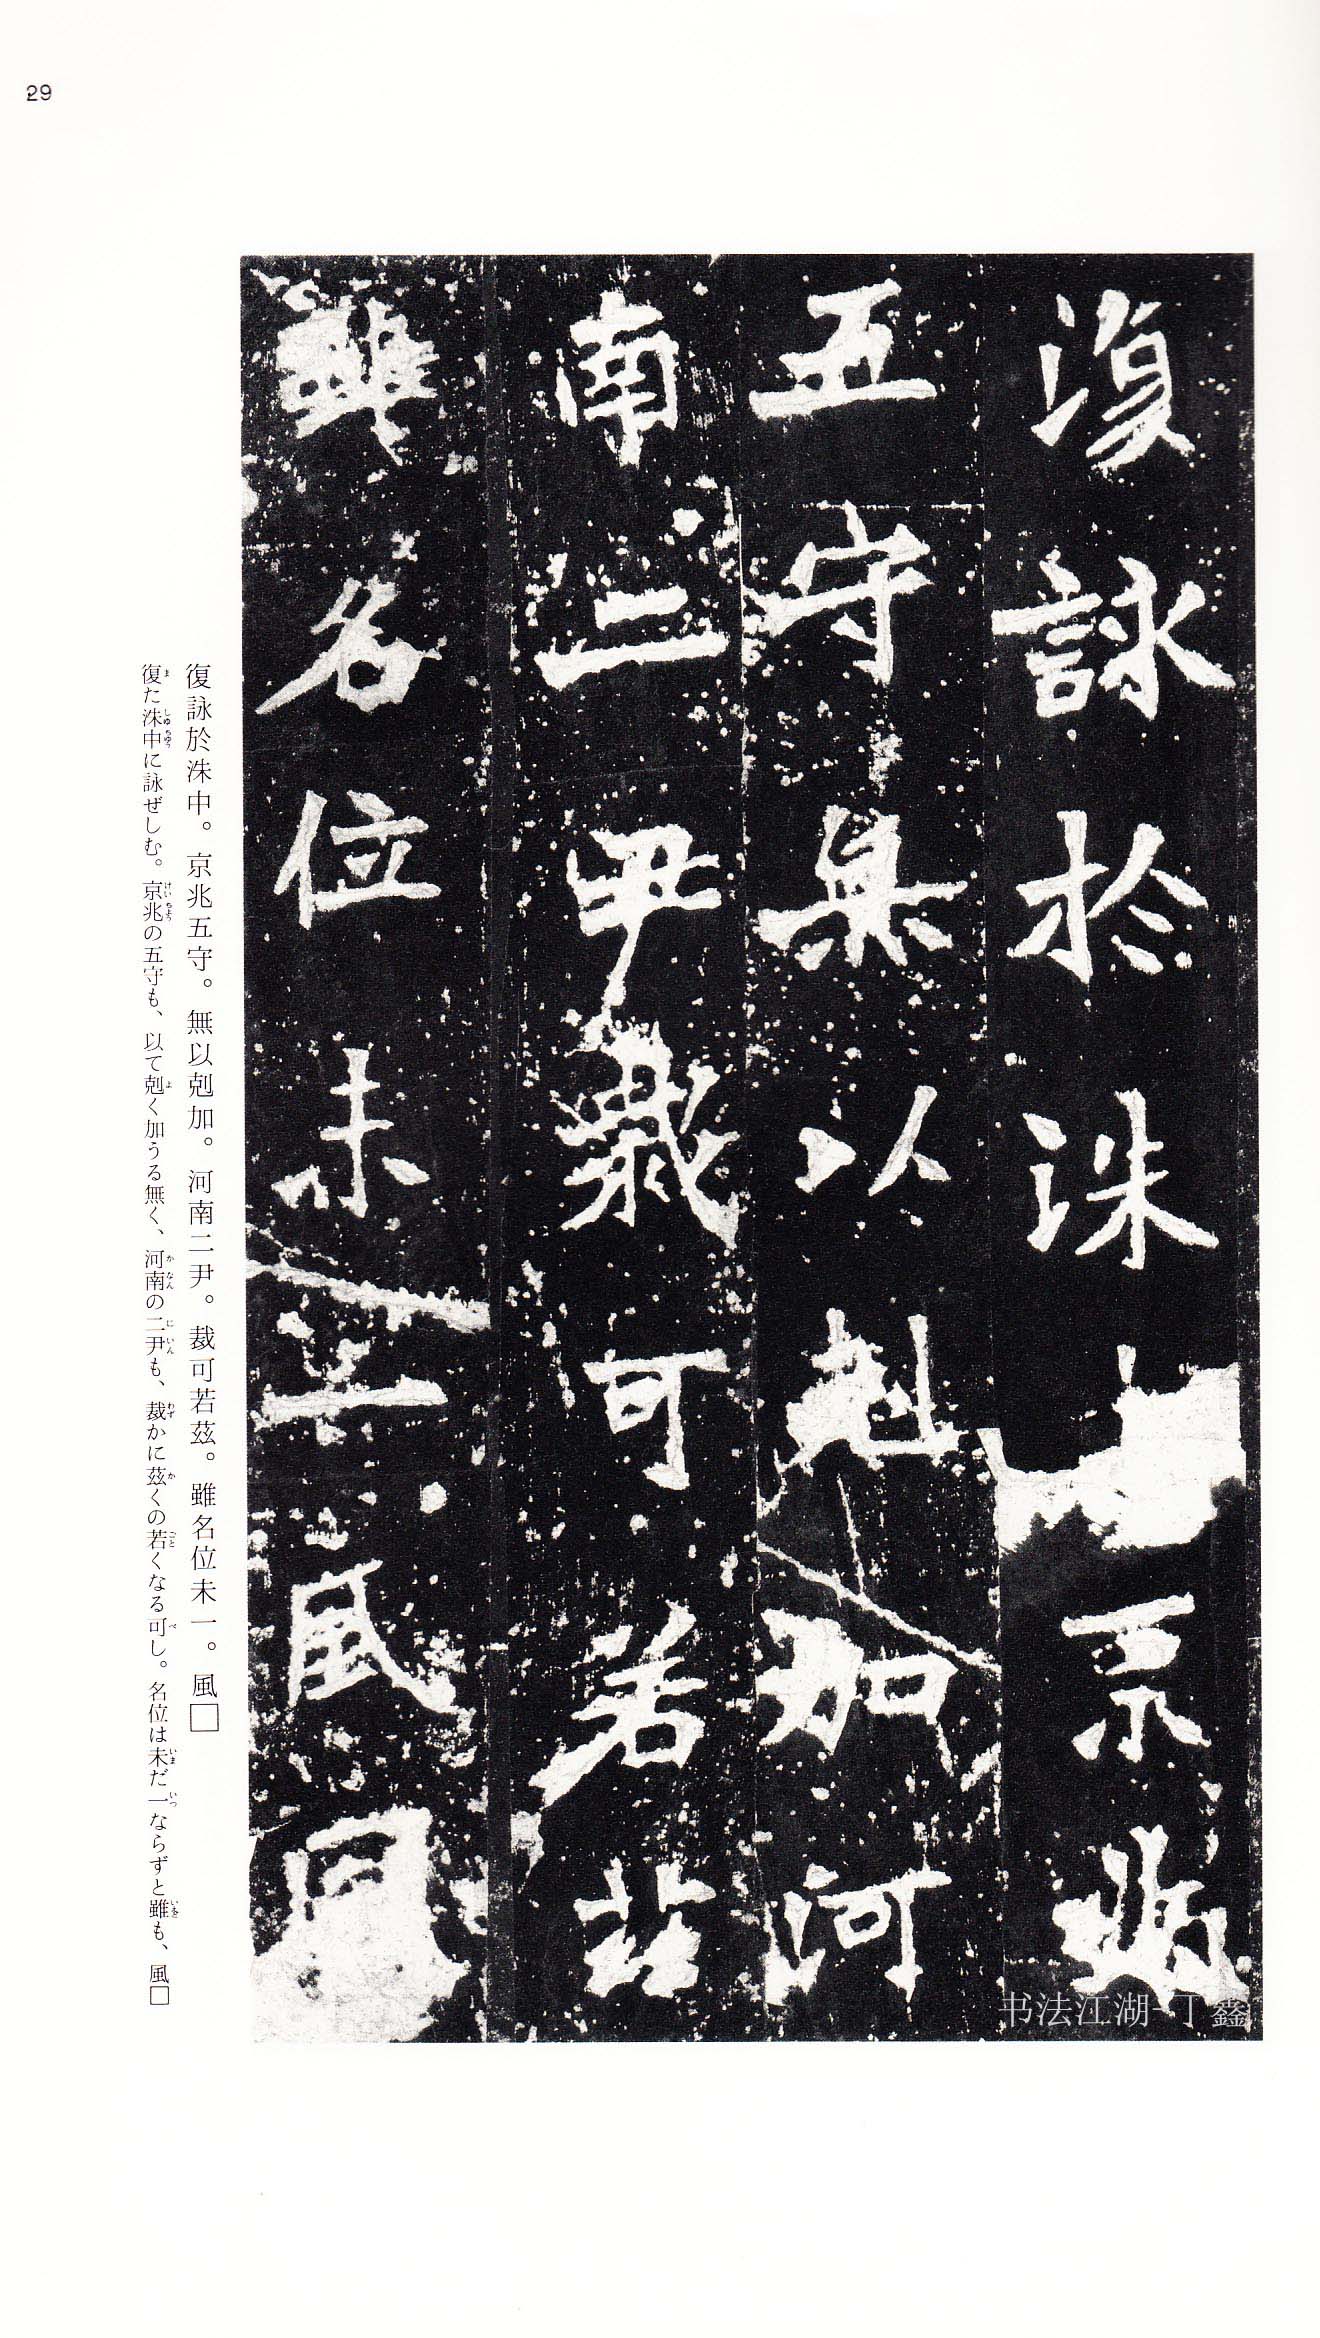 29
復詠於洙京兆
五守無以剋加河
南二尹裁可若茲
雖名位未一風
復詠於洙中。京兆五守。無以剋加。河南二尹。裁可若茲。雖名位未一。風□
復た洙中に詠ぜしむ。京兆の五守も、以て剋く加うる無く、河南の二尹も、裁かに茲くの若くなる可し。名位は未だ一ならずと雖も、風□
书法江湖-丁鑫